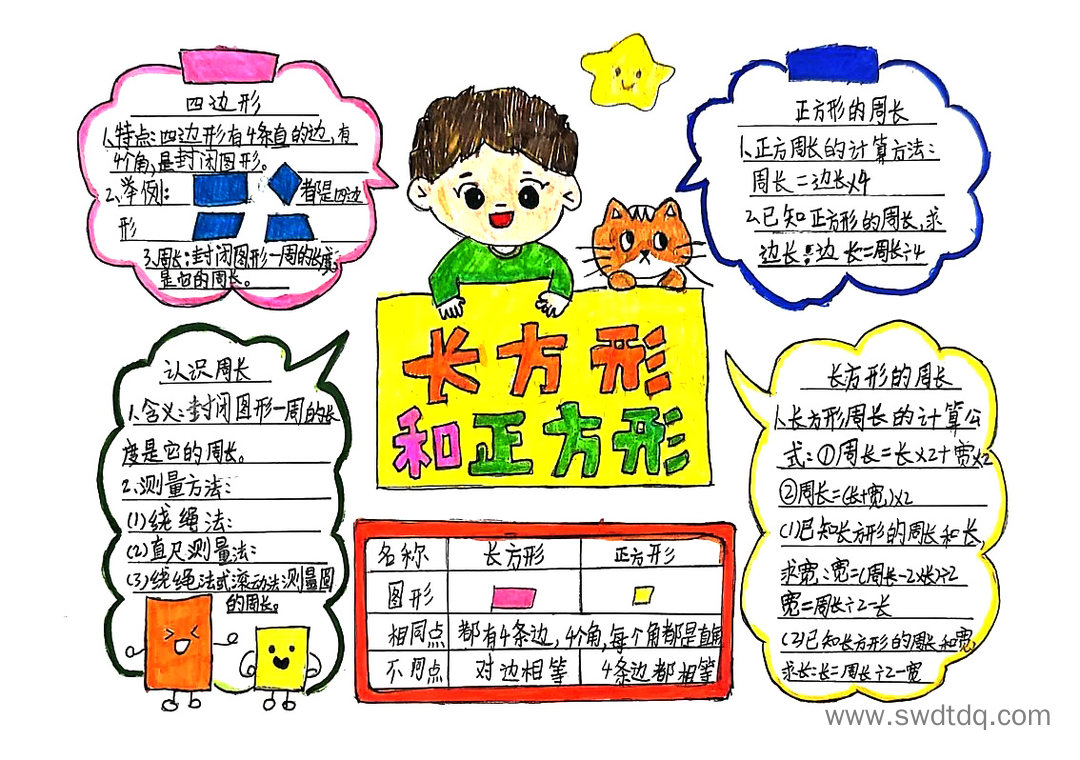 四边形
1.特点:四边形有4条直的边,有
4个角,是封闭图形。
2.举例:
都是四边
形
3.周长:封闭图形一周的长度
是它的周长。
正方形的周长
1.正方周长的计算方法:
周长=边长×4
2.已知正方形的周长,求
边长:边长=周长÷4
长方形
和正方形
认识周长
1.含义:封闭图形一周的长
度是它的周长。
2.测量方法:
(1)绕绳法:
(2)直尺测量法:
(3)绕绳法或滚动法测量圆
的周长。
名称 长方形 正方形
图形
相同点 都有4条边,4个角,每个角都是直角
不同点 对边相等 4条边都相等
长方形的周长
1.长方形周长的计算公
式:①周长=长×2+宽×2
②周长=(长+宽)×2
(1)已知长方形的周长和长,
求宽:宽=(周长-2×长)÷2
宽=周长÷2-长
(2)已知长方形的周长和宽,
求长:长=周长÷2-宽
www.swdtdq.com